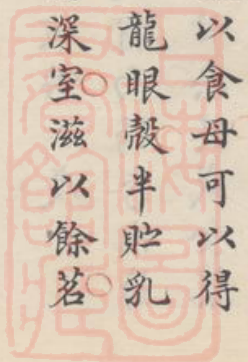 以食母可以得
龍眼殼半貯乳
深室滋以餘茗